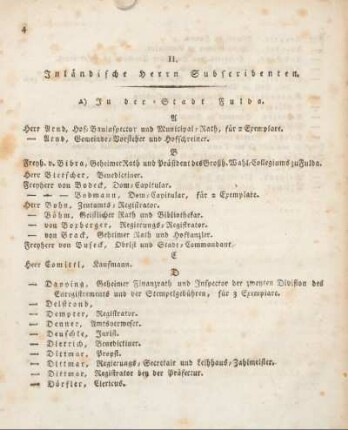 4
II.
Inländische Herrn Subscribenten.
A) In der Stadt Fulda.
A
Herr Arnd, Hof-Bauinspector und Municipal-Rath, für 2 Exemplare.
— Arnd, Gemeinde-Vorsteher und Hofschreiner.
B
Freyh. v. Bibra, Geheimer Rath und Präsident des Großh. Wahl-Collegiums zu Fulda.
Herr Bletscher, Benedictiner.
Freyherr von Bodeck, Dom-Capitular.
— — Bodmann, Dom-Capitular, für 2 Exemplare.
Herr Bohn, Rentamts-Registrator.
— Böhm, Geistlicher Rath und Bibliothekar.
— von Boxberger, Regierungs-Registrator.
— von Brack, Geheimer Rath und Hofkanzler.
Freyherr von Buseck, Obrist und Stadt-Commandant.
C
Herr Comitti, Kaufmann.
D
— Dapping, Geheimer Finanzrath und Inspector der zweyten Division des
Enregistrements und der Stempelgebühren, für 3 Exemplare.
— Delstrand,
— Dempter, Registrator.
— Denner, Amtsverweser.
— Deuschle, Jurist.
— Dietrich, Benedictiner.
— Dittmar, Propst.
— Dittmar, Regierungs-Secretair und Leihhaus-Zahlmeister.
— Dittmar, Registrator bey der Präfectur.
— Dörfler, Clericus.